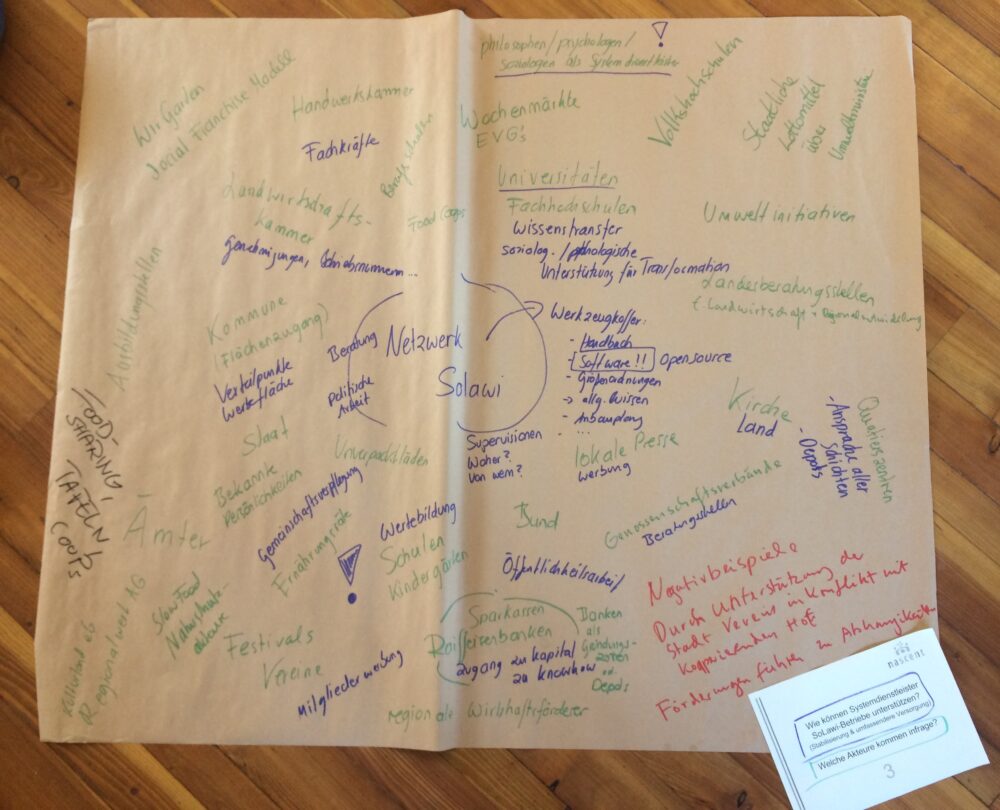 philosophen/psychologen/
soziologen als Systemdienstleister
!
Wir Garten
Social Franchise Modelle
Handwerkskammer
Fachkräfte
Berufsschulen
Wochenmärkte
EVG's
Volkshochschulen
Staatliche
Lottomittel
über
Umweltministerien
Landwirtschafts-
kammer
Genehmigungen, Betriebsnummern...
Food Coops
Universitäten
Fachhochschulen
Wissenstransfer
soziolog./psychologische
Unterstützung für Transformation
Umweltinitiativen
Landesberatungsstellen
f. Landwirtschaft + Regionalentwicklung
Ausbildungsstellen
Kommune
(Flächenzugang)
Verteilpunkte
Werbefläche
Beratung
Netzwerk
Solawi
politische
Arbeit
Werkzeugkoffer:
- Handbuch
- Software!! Opensource
- Größenordnungen
-> allg. Wissen
- Anbauplanung
- ...
Supervisionen
Woher?
Von wem?
lokale Presse
werbung
Kirche
Land
Quartierszentren
- Ansprache aller
Schichten
- Depots
Staat
Unverpacktläden
Bekannte
Persönlichkeiten
FOOD-
SHARING,
TAFELN
COOPS
Ämter
Gemeinschaftsverpflegung
Ernährungsräte
!
Wertebildung
Schulen
Kindergärten
Bund
Öffentlichkeitsarbeit
Genossenschaftsverbände
Beratungsstellen
Negativbeispiele
Durch Unterstützung der
Stadt Vereins in Konflikt mit
kooperierenden Hof
Förderungen führen zu Abhängigkeiten
Slow Food
Naturschutz
Kulturland eG
Regionalwert AG
Festivals
Vereine
Mitgliederwerbung
Sparkassen
Raiffeisenbanken
zugang zu Kapital
zu knowhow
Banken
als
od.
Depots
regionale Wirtschaftsförderer
nascent
Wie können Systemdienstleister
SoLawi-Betriebe unterstützen?
(Stabilisierung & umfassendere Versorgung)
Welche Akteure kommen infrage?
3